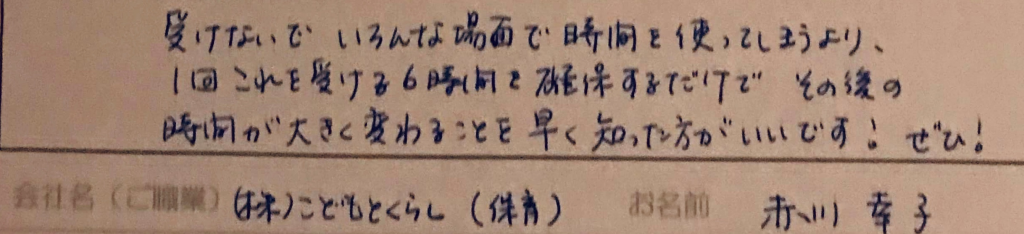 受けないで いろんな場面で時間を使ってしまうより、
1回これを受ける6時間を確保するだけで その後の
時間が大きく変わることを早く知った方がいいです! ぜひ!
会社名(ご職業) (株)こどもとくらし (保育) お名前 赤川 幸子